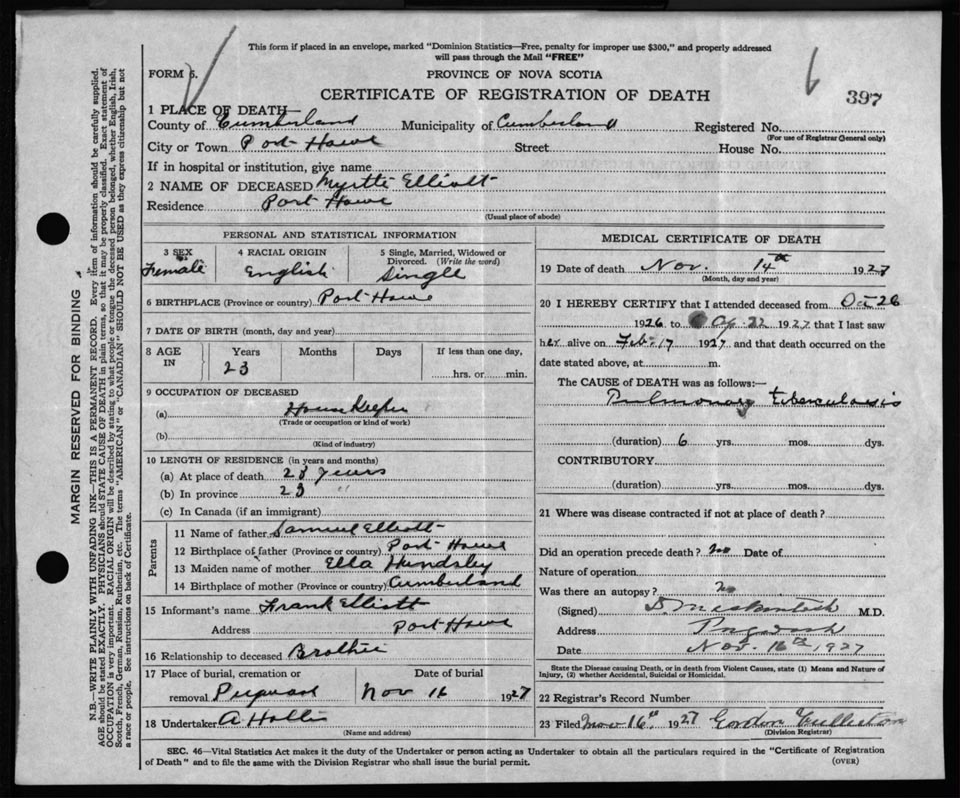 This form if placed in an envelope, marked "Dominion Statistics—Free, penalty for improper use $300," and properly addressed
will pass through the Mail "FREE"
FORM 6.
PROVINCE OF NOVA SCOTIA
6
397
CERTIFICATE OF REGISTRATION OF DEATH
1 PLACE OF DEATH—
County of Cumberland Municipality of Cumberland Registered No.
(For use of Registrar General only)
City or Town Port Howe Street House No.
If in hospital or institution, give name
2 NAME OF DECEASED Myrtle Elliott
Residence Port Howe
(Usual place of abode)
PERSONAL AND STATISTICAL INFORMATION
3 SEX
Female
4 RACIAL ORIGIN
English
5 Single, Married, Widowed or
Divorced. (Write the word)
Single
6 BIRTHPLACE (Province or country) Port Howe
7 DATE OF BIRTH (month, day and year)
8 AGE
IN
Years
23
Months
Days
If less than one day,
hrs. or min.
9 OCCUPATION OF DECEASED
(a) House Keeper
(Trade or occupation or kind of work)
(b)
(Kind of industry)
10 LENGTH OF RESIDENCE (in years and months)
(a) At place of death 23 years
(b) In province 23 "
(c) In Canada (if an immigrant)
Parents
11 Name of father Samuel Elliott
12 Birthplace of father (Province or country) Port Howe
13 Maiden name of mother Ella Hunsley
14 Birthplace of mother (Province or country) Cumberland
15 Informant's name Frank Elliott
Address Port Howe
16 Relationship to deceased Brother
17 Place of burial, cremation or
removal Pugwash
Date of burial
Nov 16 1927
18 Undertaker A Hollis
(Name and address)
MEDICAL CERTIFICATE OF DEATH
19 Date of death Nov. 14th 1927
(Month, day and year)
20 I HEREBY CERTIFY that I attended deceased from Oct 26
1926 to 22 1927 that I last saw
her alive on Feb. 17 1927 and that death occurred on the
date stated above, at m.
The CAUSE of DEATH was as follows:—
Pulmonary tuberculosis
(duration) 6 yrs. mos. dys.
CONTRIBUTORY
(duration) yrs. mos. dys.
21 Where was disease contracted if not at place of death?
Did an operation precede death? no Date of
Nature of operation
Was there an autopsy? no
(Signed) D. MacKintosh M.D.
Address Pugwash
Date Nov. 16th 1927
State the Disease causing Death, or in death from Violent Causes, state (1) Means and Nature of
Injury, (2) whether Accidental, Suicidal or Homicidal.
22 Registrar's Record Number
23 Filed Nov 16th 1927 Gordon Fullerton
(Division Registrar)
SEC. 46—Vital Statistics Act makes it the duty of the Undertaker or person acting as Undertaker to obtain all the particulars required in the "Certificate of Registration
of Death" and to file the same with the Division Registrar who shall issue the burial permit.
(OVER)
MARGIN RESERVED FOR BINDING
N.B.—WRITE PLAINLY WITH UNFADING INK—THIS IS A PERMANENT RECORD. Every item of information should be carefully supplied.
AGE should be stated EXACTLY. PHYSICIANS should STATE CAUSE OF DEATH in plain terms, so that it may be properly classified. Exact statement of
OCCUPATION is very important. RACIAL ORIGIN will be described by stating to what people or tongue the deceased person belonged, whether English, Irish,
Scotch, French, German, Russian, Ruthenian, etc. The terms "AMERICAN" or "CANADIAN" SHOULD NOT BE USED as they express citizenship but not
a race or people. See instructions on back of Certificate.